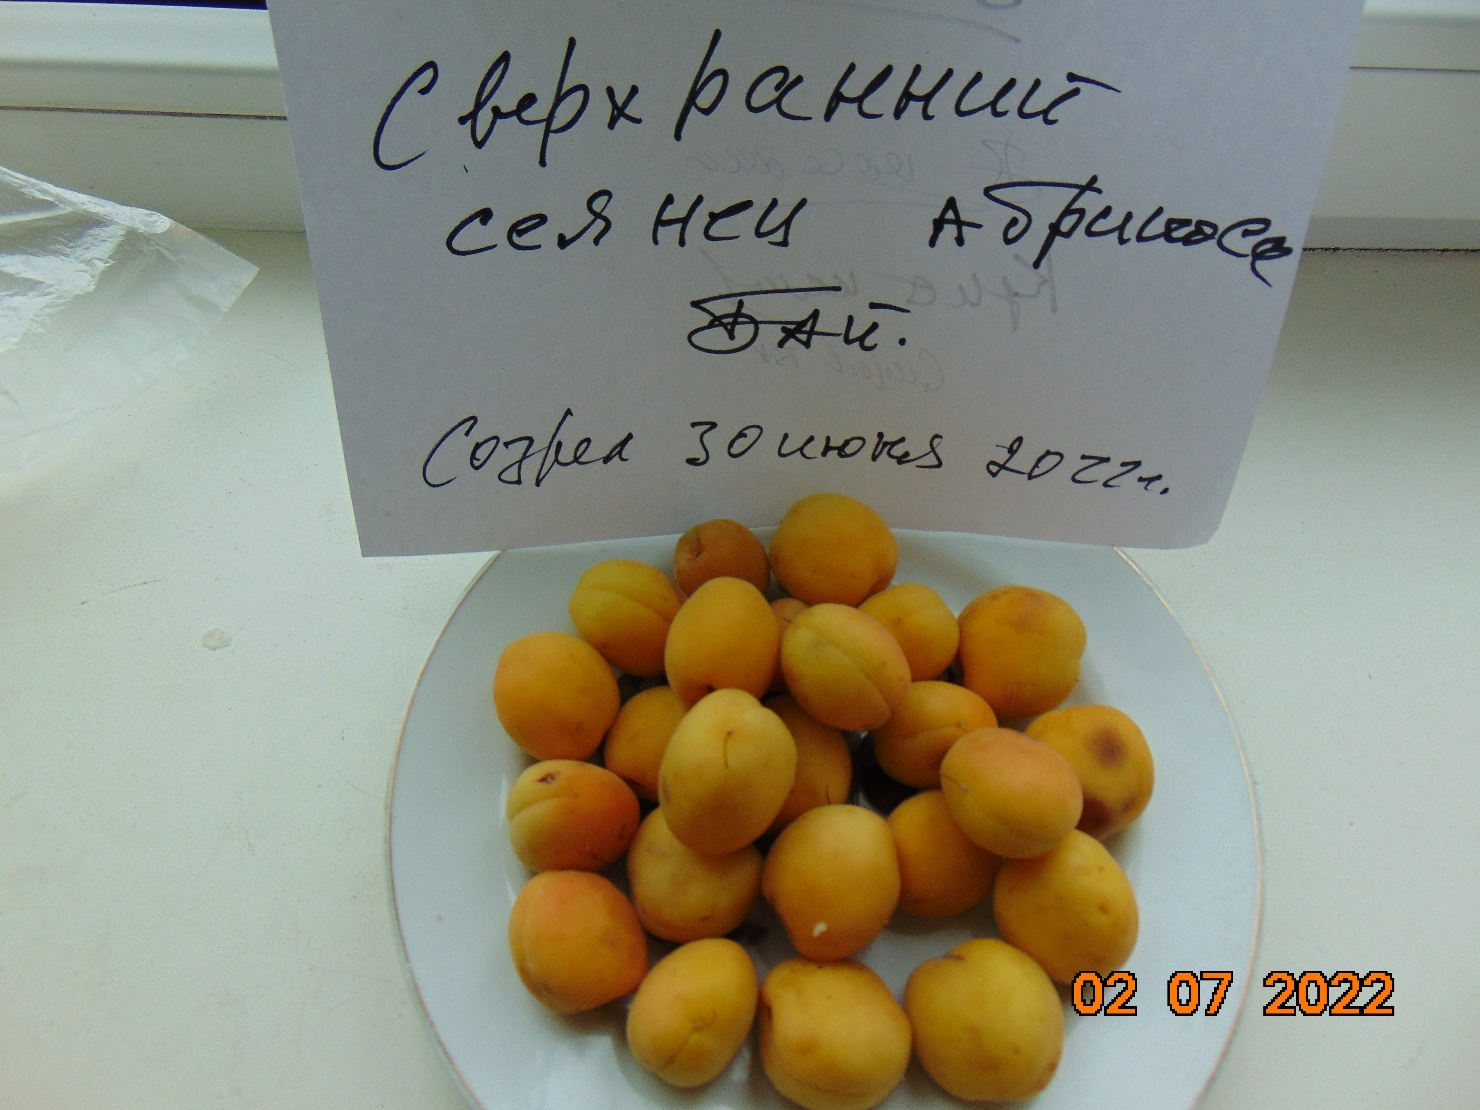 Сверхранний
сеянец Абрикоса
БАй.
Созрел 30 июня 2022г.
02 07 2022